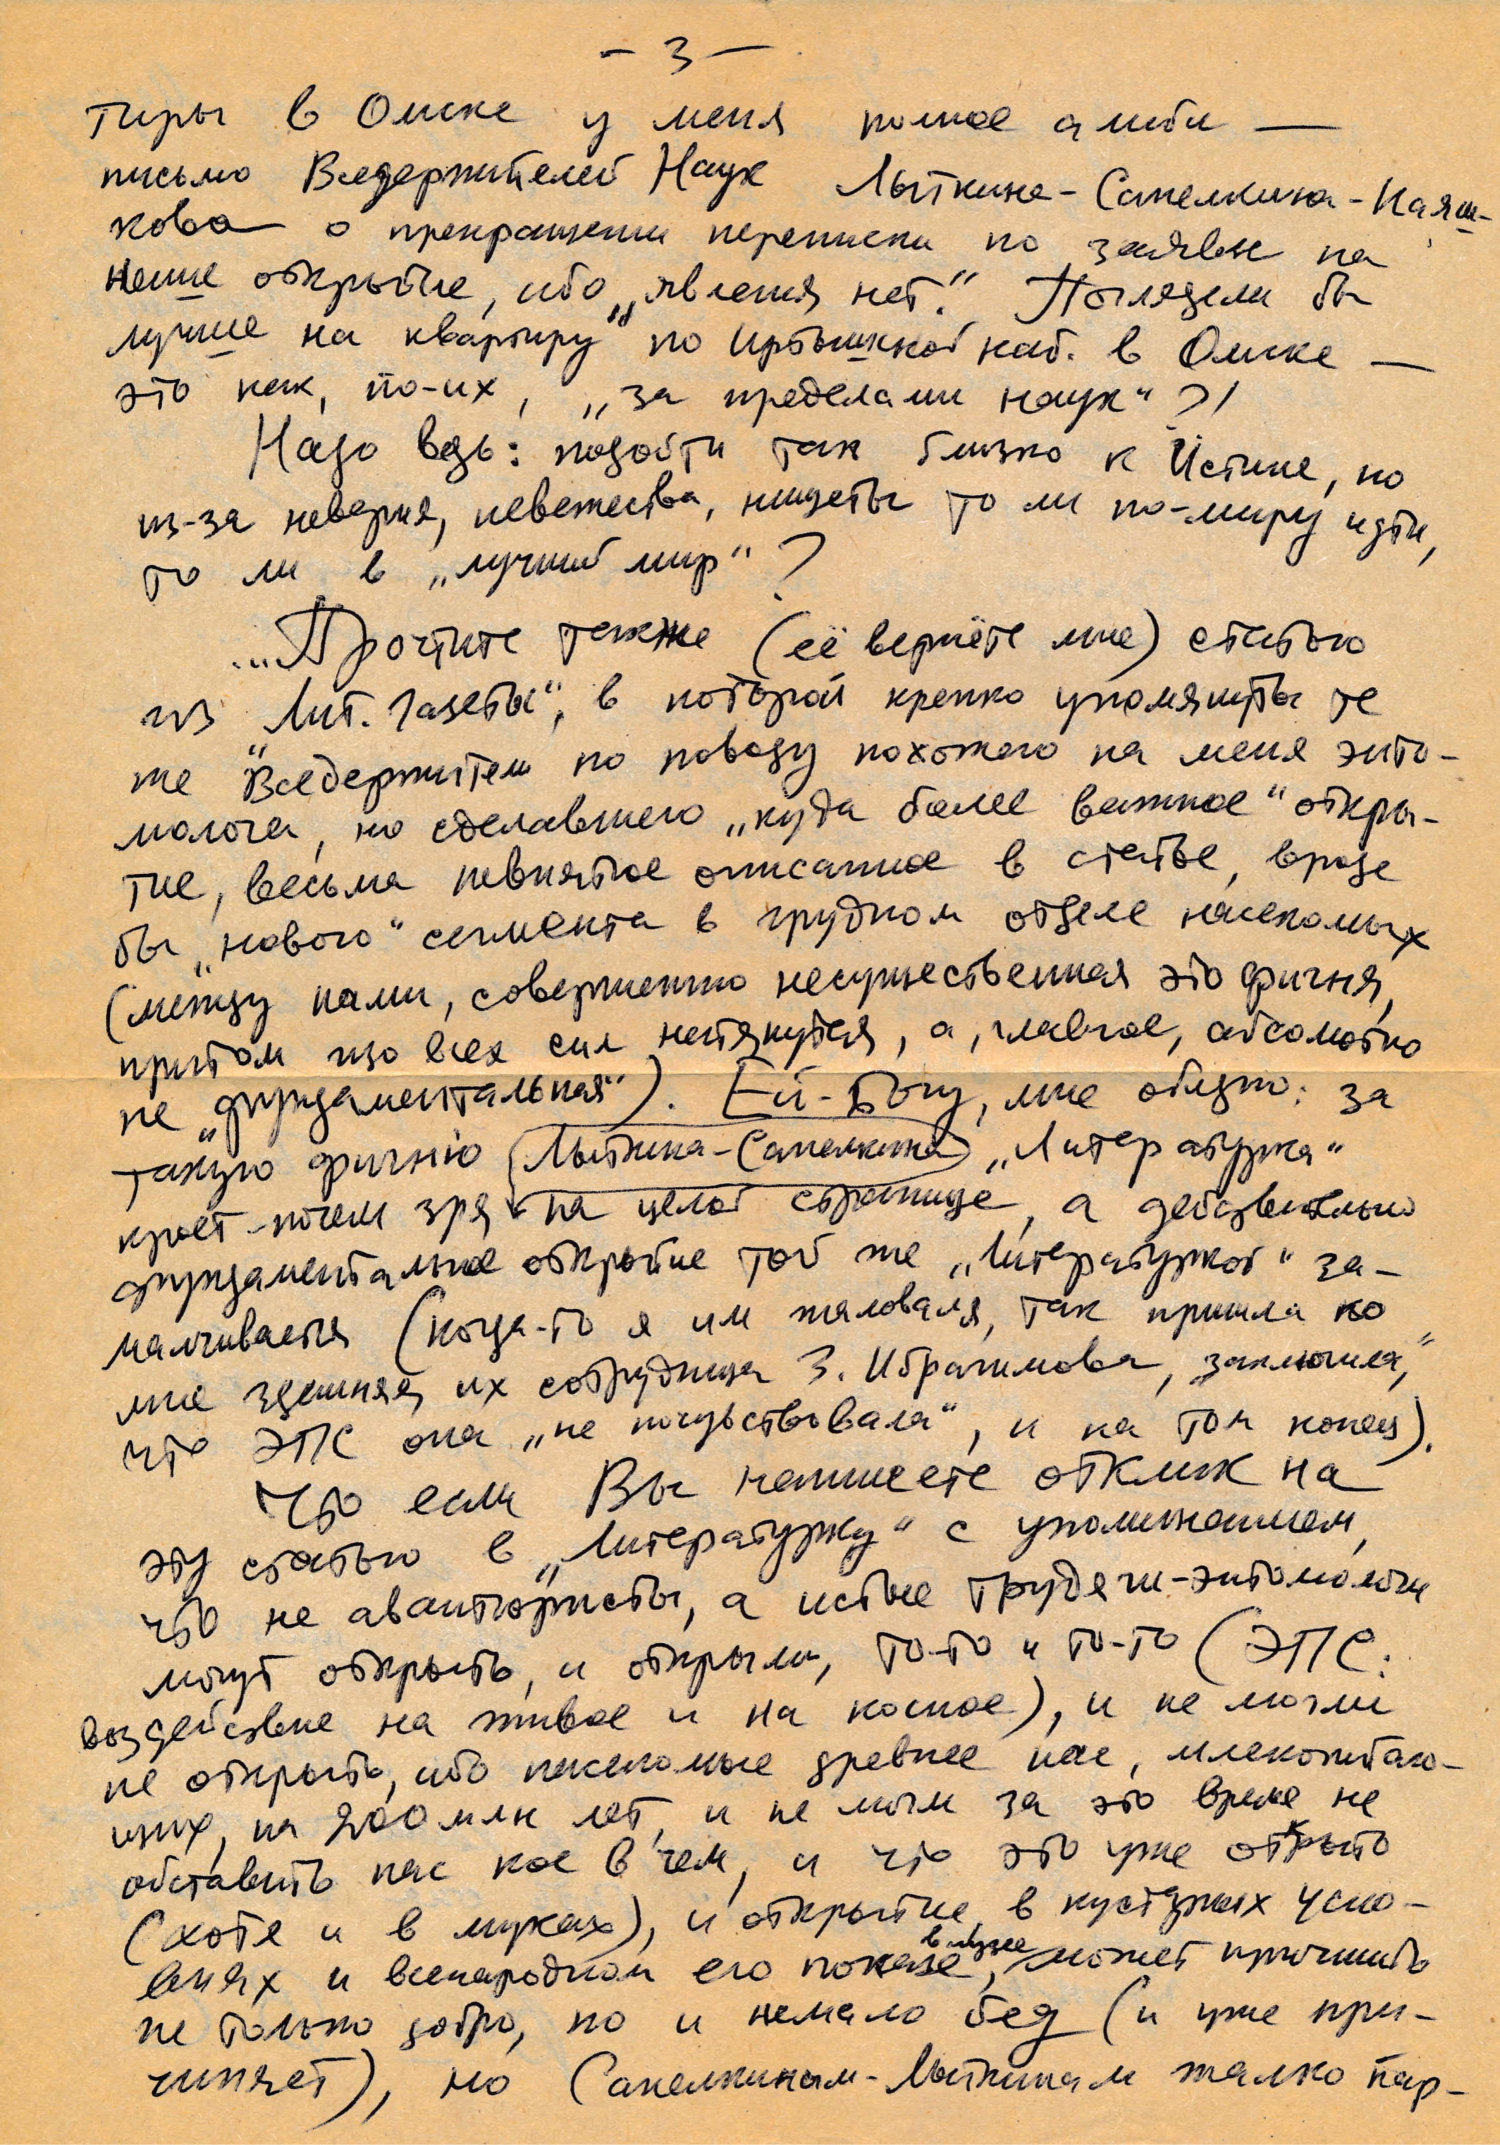 – 3 –
тиры в Омске у меня полное алиби —
письмо Вседержителей Наук Лыткина-Сапелкина-Каяш-
кова о прекращении переписки по заявке на
наше открытие, ибо „явления нет“. Поглядели бы
лучше на квартиру по Иртышской наб. в Омске —
это как, по-их, „за пределами наук“?!
Надо ведь: подойти так близко к Истине, но
из-за неверия, невежества, нищеты то ли по-миру идти,
то ли в „лучший мир“?
...Прочтите также (её вернёте мне) статью
из „Лит. газеты“, в которой крепко упомянуты те
же Вседержители по поводу похожего на меня энто-
молога, но сделавшего „куда более важное“ откры-
тие, весьма невнятное описанное в статье, вроде
бы „нового“ сегмента в грудном отделе насекомых
(между нами, совершенно несущественная это фигня,
притом изо всех сил натянутая, а, главное, абсолютно
не „фундаментальная“). Ей-Богу, мне обидно: за
такую фигню Лыткина-Сапелкина „Литературка“
кроет почем зря на целой странице, а действительно
фундаментальное открытие той же „Литературкой“ за-
малчивается (когда-то я им жаловался, так пришла ко
мне здешняя их сотрудница З. Ибрагимова, „заключила“,
что ЭПС она „не почувствовала“, и на том конец).
Что если Вы напишете отклик на
эту статью в „Литературку“ с упоминанием,
что не авантюристы, а истые трудяги-энтомологи
могут открыть, и открыли, то-то и то-то (ЭПС:
воздействие на живое и на косное), и не могли
не открыть, ибо насекомые древнее нас, млекопитаю-
щих, на 200 млн лет, и не могли за это время не
обставить нас кое в чем, и что это уже открыто
(хотя и в муках), и открытие, в кустарных усло-
виях и всенародном его показе в музее, может причинить
не только добро, но и немало бед (и уже при-
чиняет), но Сапелкиным-Лыткинам жалко пар-